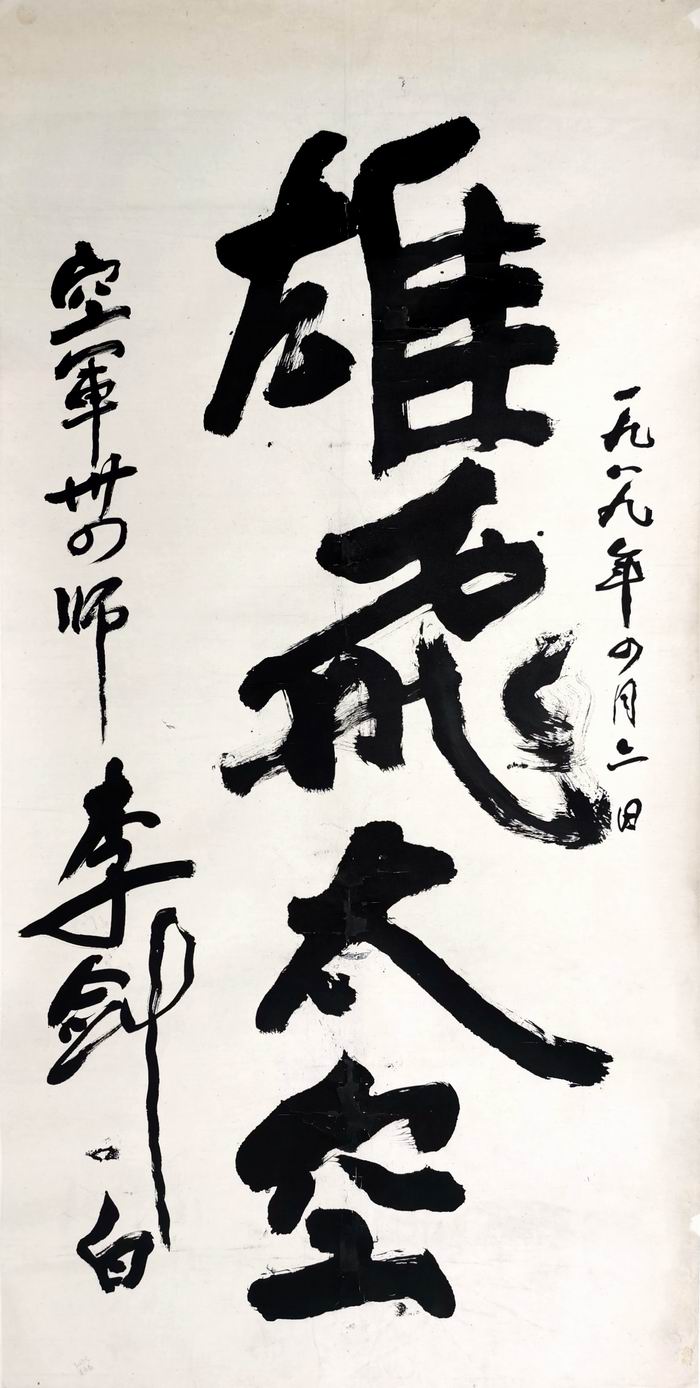 一九八九年四月六日
雄飛太空
空軍卅四师
李剑白